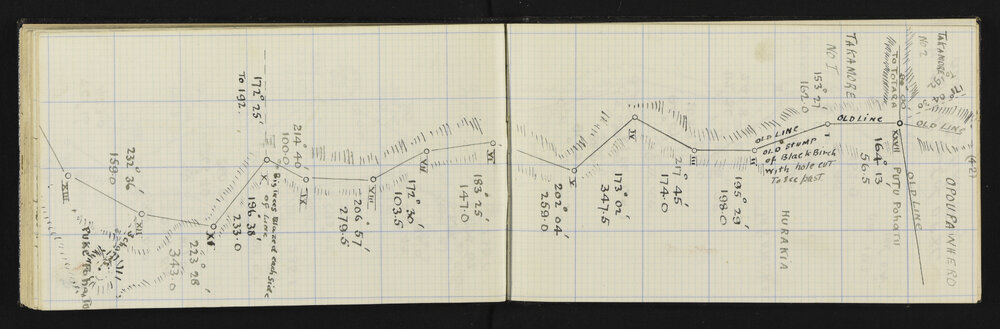 (42)
OPOUPAWHERO
TAKAMORE
NO 2
OLD LINE
OLD LINE
TO TOTARA
XXVII PUTU Poharu
164° 13
56.5
TAKAMORE
NO I
OLD LINE
153° 27'
162.0
I
OLD LINE
OLD STUMP
of Black Birch
with hole cut
To see past
HURAKIA
II
195° 29'
198.0
III
217° 45'
174.0
IV
173° 02'
347.5
V
202° 04'
289.0
VI
183° 25'
147.0
VII
172° 30'
103.5
VIII
206° 57'
279.5
IX
214° 40
100.0
172° 25'
To 192.
X
Big trees Blazed each side
of Line
196° 38'
233.0
XI
223° 28'
343.0
XII
232° 36'
159.0
XIII